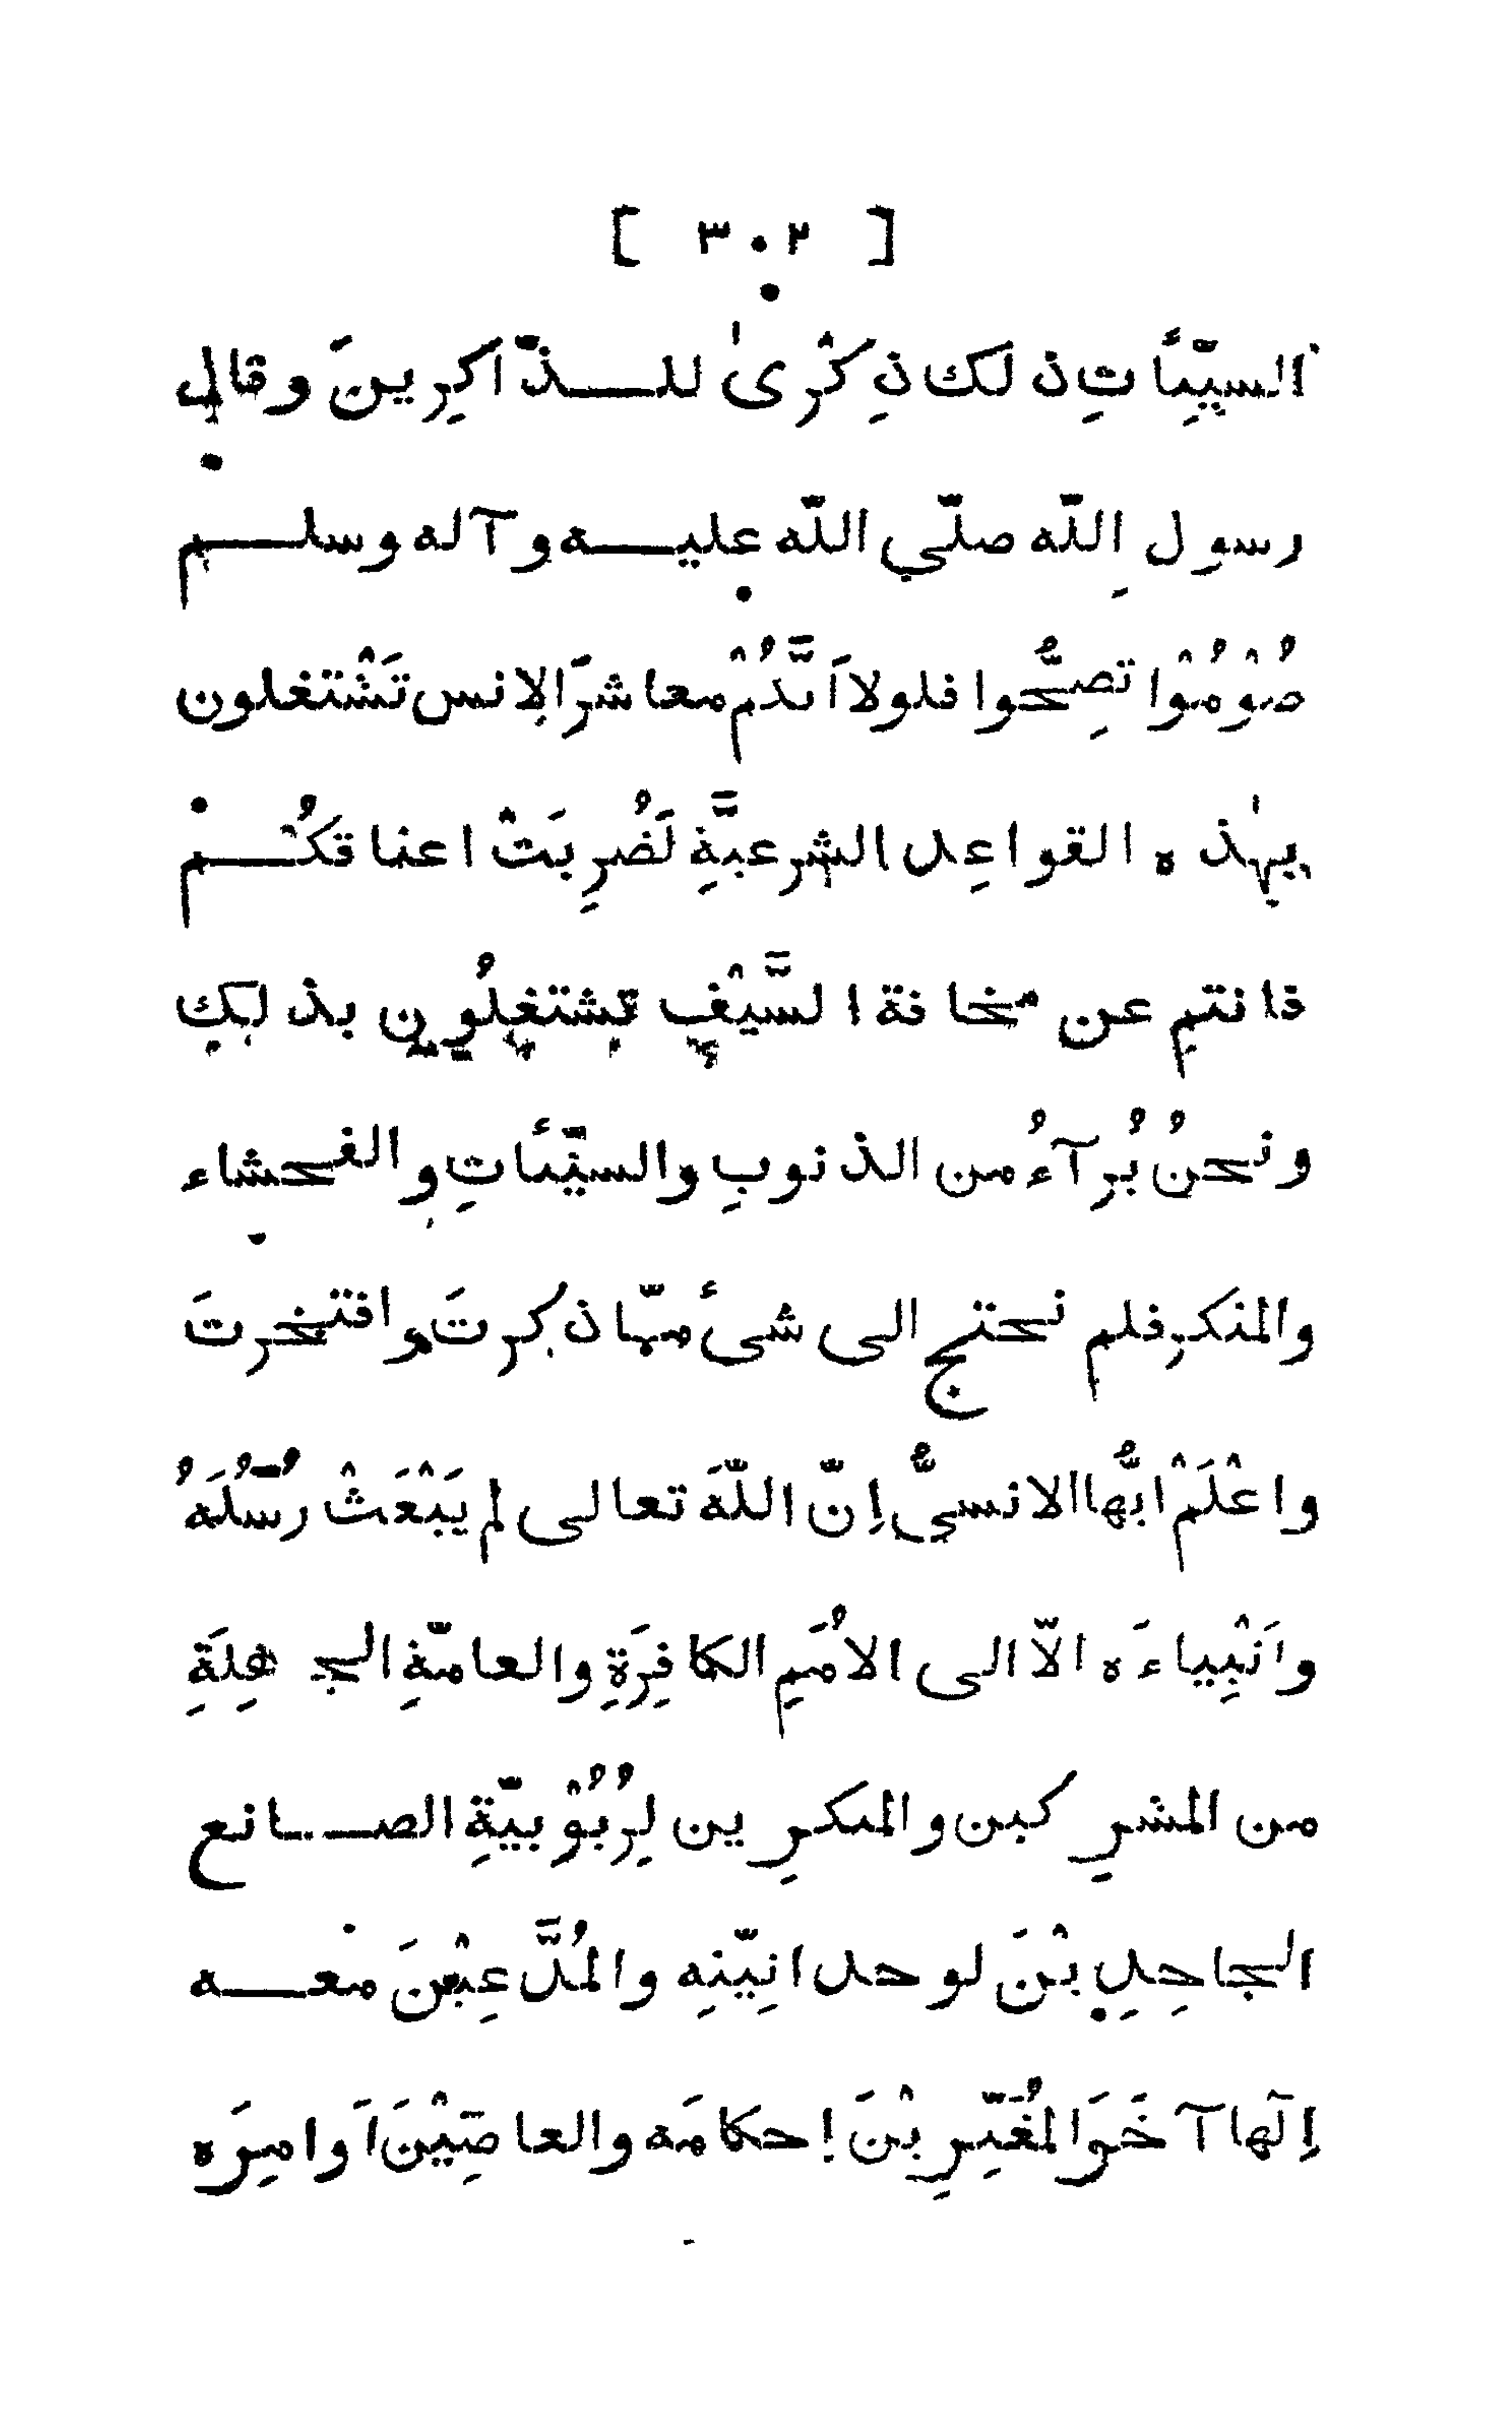 [ ٣٠٢ ]
السيِّئَاتِ ذلك ذِكْرىٰ للـــذّاكِرينَ وقال
رسول اللّه صلّي اللّه عليـــه وآله وسلـــم
صُوْمُوْا تصِحُّوا فلولا اَنَّكُمْ معاشرَ الاِنس تَشْتغلون
بهٰذه القواعِد الشرعيَّةِ لَضُرِبَتْ اعناقكُـــمْ
فانتم عن مخافة السَّيْفِ تشتغلُون بذلك
ونحنُ بُرآءُ من الذنوبِ والسيِّئاتِ والفحشاء
والمنكر فلم نحتج الى شىٔ ممّا ذكرتَ وافتخرتَ
واعْلَمْ ايُّها الانسيُّ اِنّ اللّهَ تعالى لم يَبْعَثْ رُسُلَهُ
واَنْبِياءَه الّا الى الاُمَمِ الكافِرَةِ والعامّةِ الجـ هِلَةِ
من المشرِكين والمنكرِين لِرُبُوْبيّةِ الصـــانع
الجاحِدِيْنَ لوحدانِيّتِه والمُدَّعِيْنَ معـــه
اِلٰها آخَرَ المُغَيِّرِيْنَ احكامَه والعاصِيْنَ اَوامِرَه